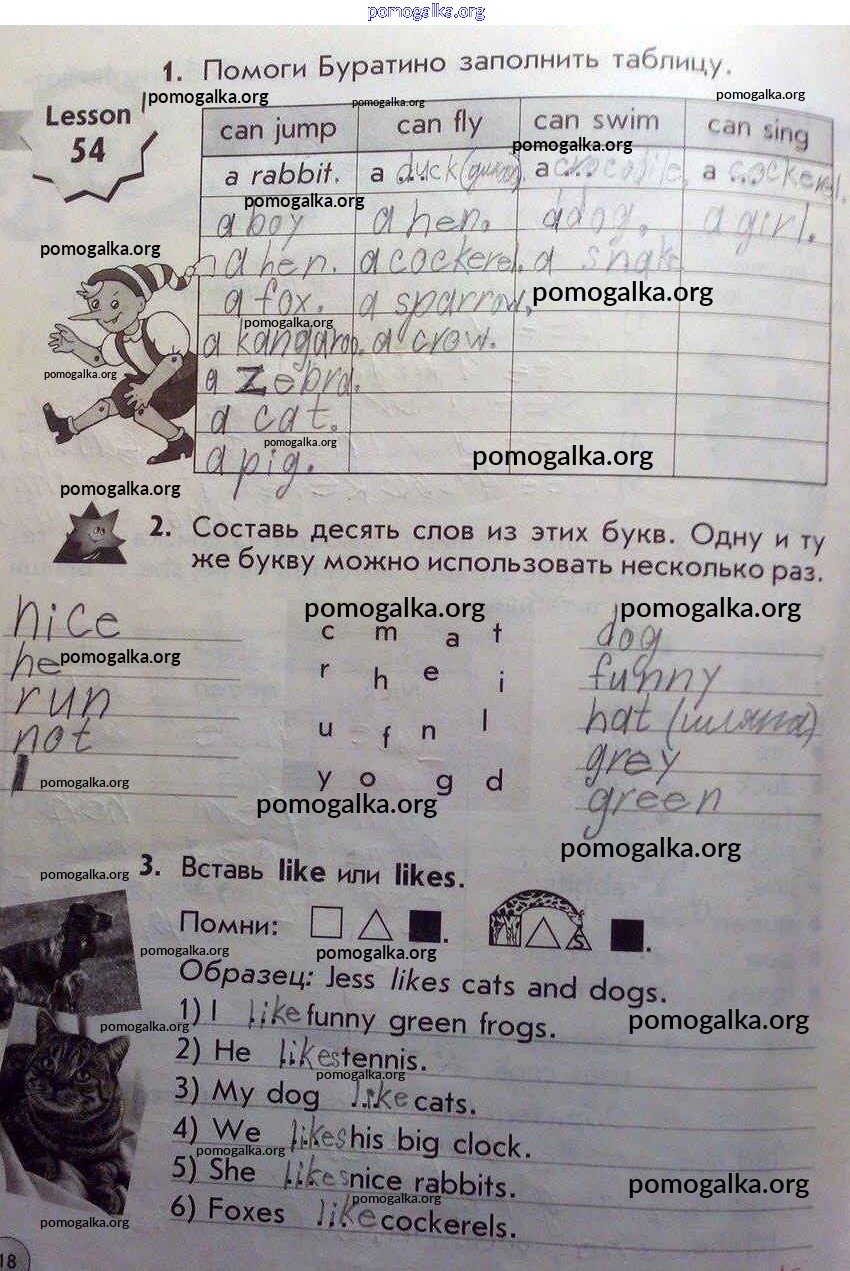 pomogalka.org
1. Помоги Буратино заполнить таблицу.
Lesson 54
pomogalka.org pomogalka.org pomogalka.org
can jump can fly can swim can sing
pomogalka.org
a rabbit. a duck a crocodile. a cockerel.
pomogalka.org
a boy a hen. a dog. a girl.
pomogalka.org
a hen. a cockerel. a snake
a fox. a sparrow.
pomogalka.org
pomogalka.org
a kangaroo. a crow.
pomogalka.org
a zebra.
a cat.
pomogalka.org
a pig.
pomogalka.org
pomogalka.org
2. Составь десять слов из этих букв. Одну и ту
же букву можно использовать несколько раз.
nice
he
run
not
pomogalka.org pomogalka.org
pomogalka.org
c m a t
r h e i
u f n l
y o g d
pomogalka.org
pomogalka.org
dog
funny
hat (шляпа)
grey
green
pomogalka.org
3. Вставь like или likes.
pomogalka.org
Помни:
s
pomogalka.org
pomogalka.org
Образец: Jess likes cats and dogs.
1) I like funny green frogs.
pomogalka.org
pomogalka.org
2) He likes tennis.
pomogalka.org
3) My dog like cats.
4) We likes his big clock.
pomogalka.org
5) She likes nice rabbits.
pomogalka.org
pomogalka.org
6) Foxes like cockerels.
pomogalka.org
18